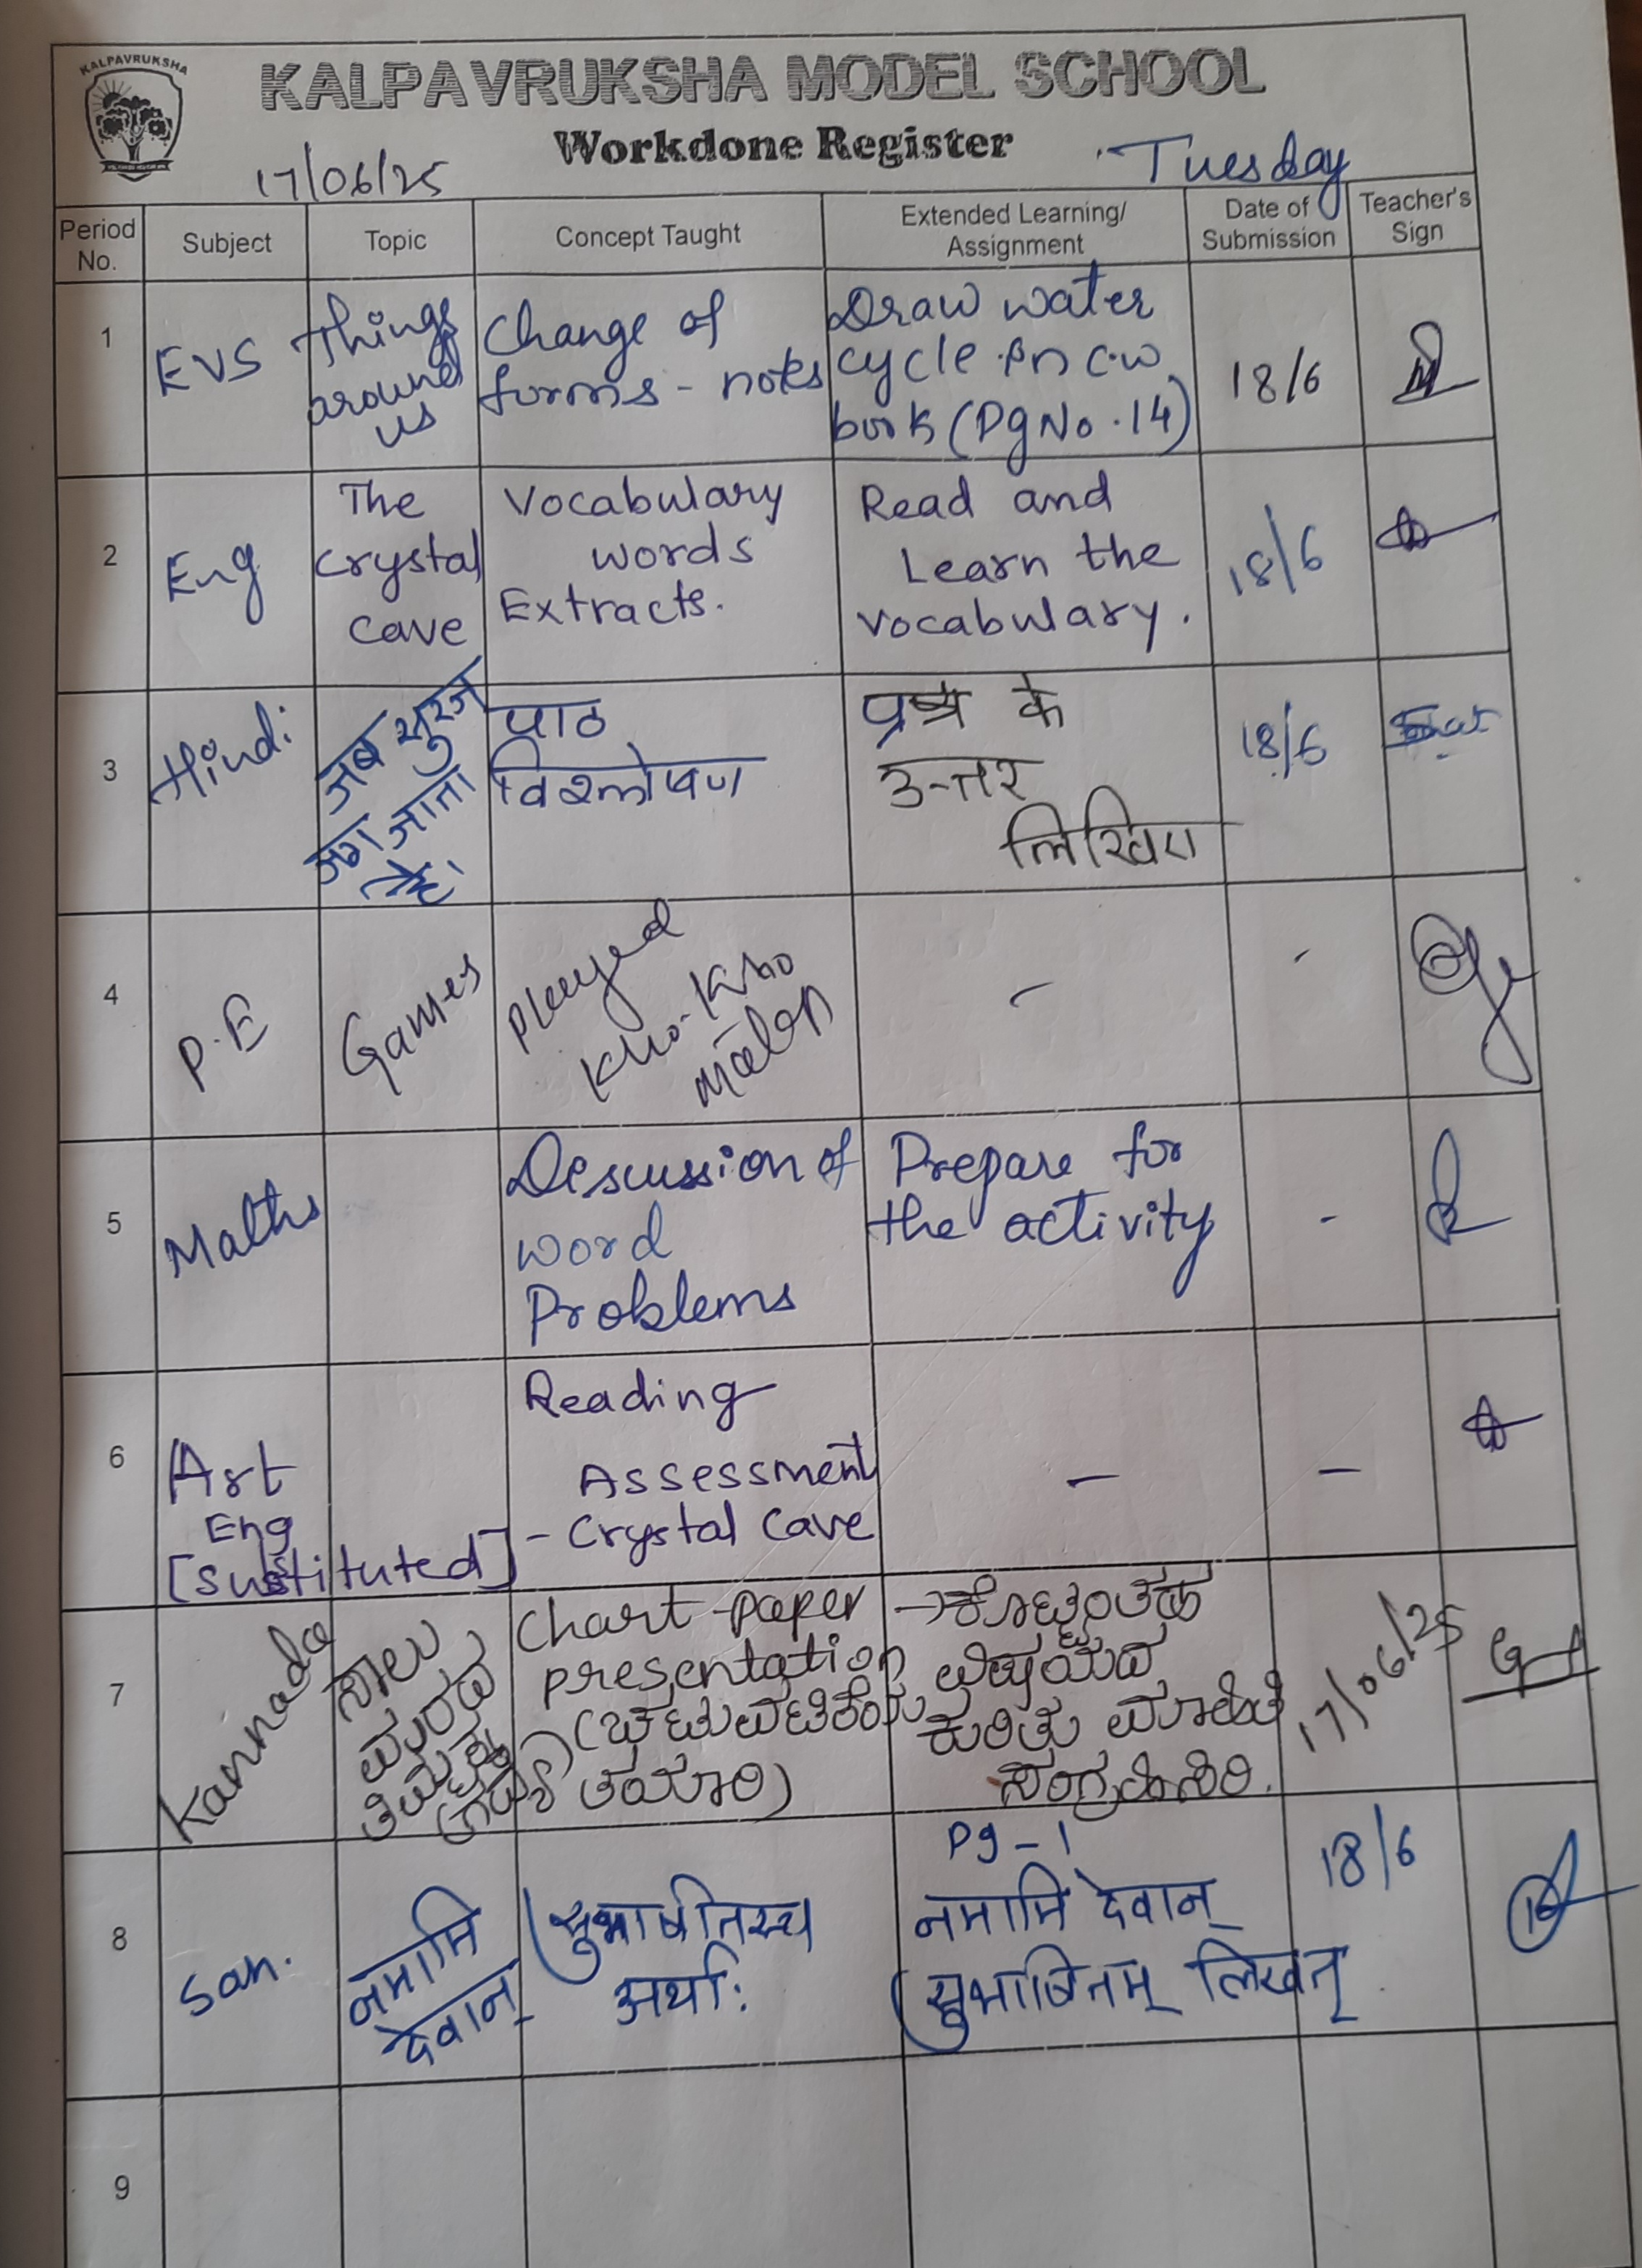 KALPAVRUKSHA
KALPAVRUKSHA MODEL SCHOOL
Workdone Register
17/06/25
Tuesday
Period No.
Subject
Topic
Concept Taught
Extended Learning/ Assignment
Date of Submission
Teacher's Sign
1
EVS
Things
around
us
Change of
forms - notes
Draw water
cycle in c.w
book (Pg No. 14)
18/6
2
Eng
The
Crystal
Cave
Vocabulary
words
Extracts.
Read and
Learn the
vocabulary.
18/6
3
Hindi
जब सूरज
जग जाता
है।
पाठ
विश्लेषण
प्रश्न के
उत्तर
लिखिए
18/6
4
P.E
Games
Played
Kho-Kho
match
-
-
5
Maths
Descussion of
word
Problems
Prepare for
the activity
-
6
Art
Eng
[Substituted]
Reading
Assessment
- Crystal Cave
-
-
7
Kannada
ಸಾಲು
ಮರದ
ತಿಮ್ಮಕ್ಕ
(ಗದ್ಯ)
Chart-paper
presentation
(ಚಟುವಟಿಕೆಯ
ತಯಾರಿ)
→ ಕೊಟ್ಟಂತಹ
ವಿಷಯದ
ಕುರಿತು ಮಾಹಿತಿ
ಸಂಗ್ರಹಿಸಿರಿ.
17/06/25
8
San.
नमामि
देवान्
सुभाषितस्य
अर्थाः
Pg - 1
नमामि देवान्
सुभाषितम् लिखतु.
18/6
9